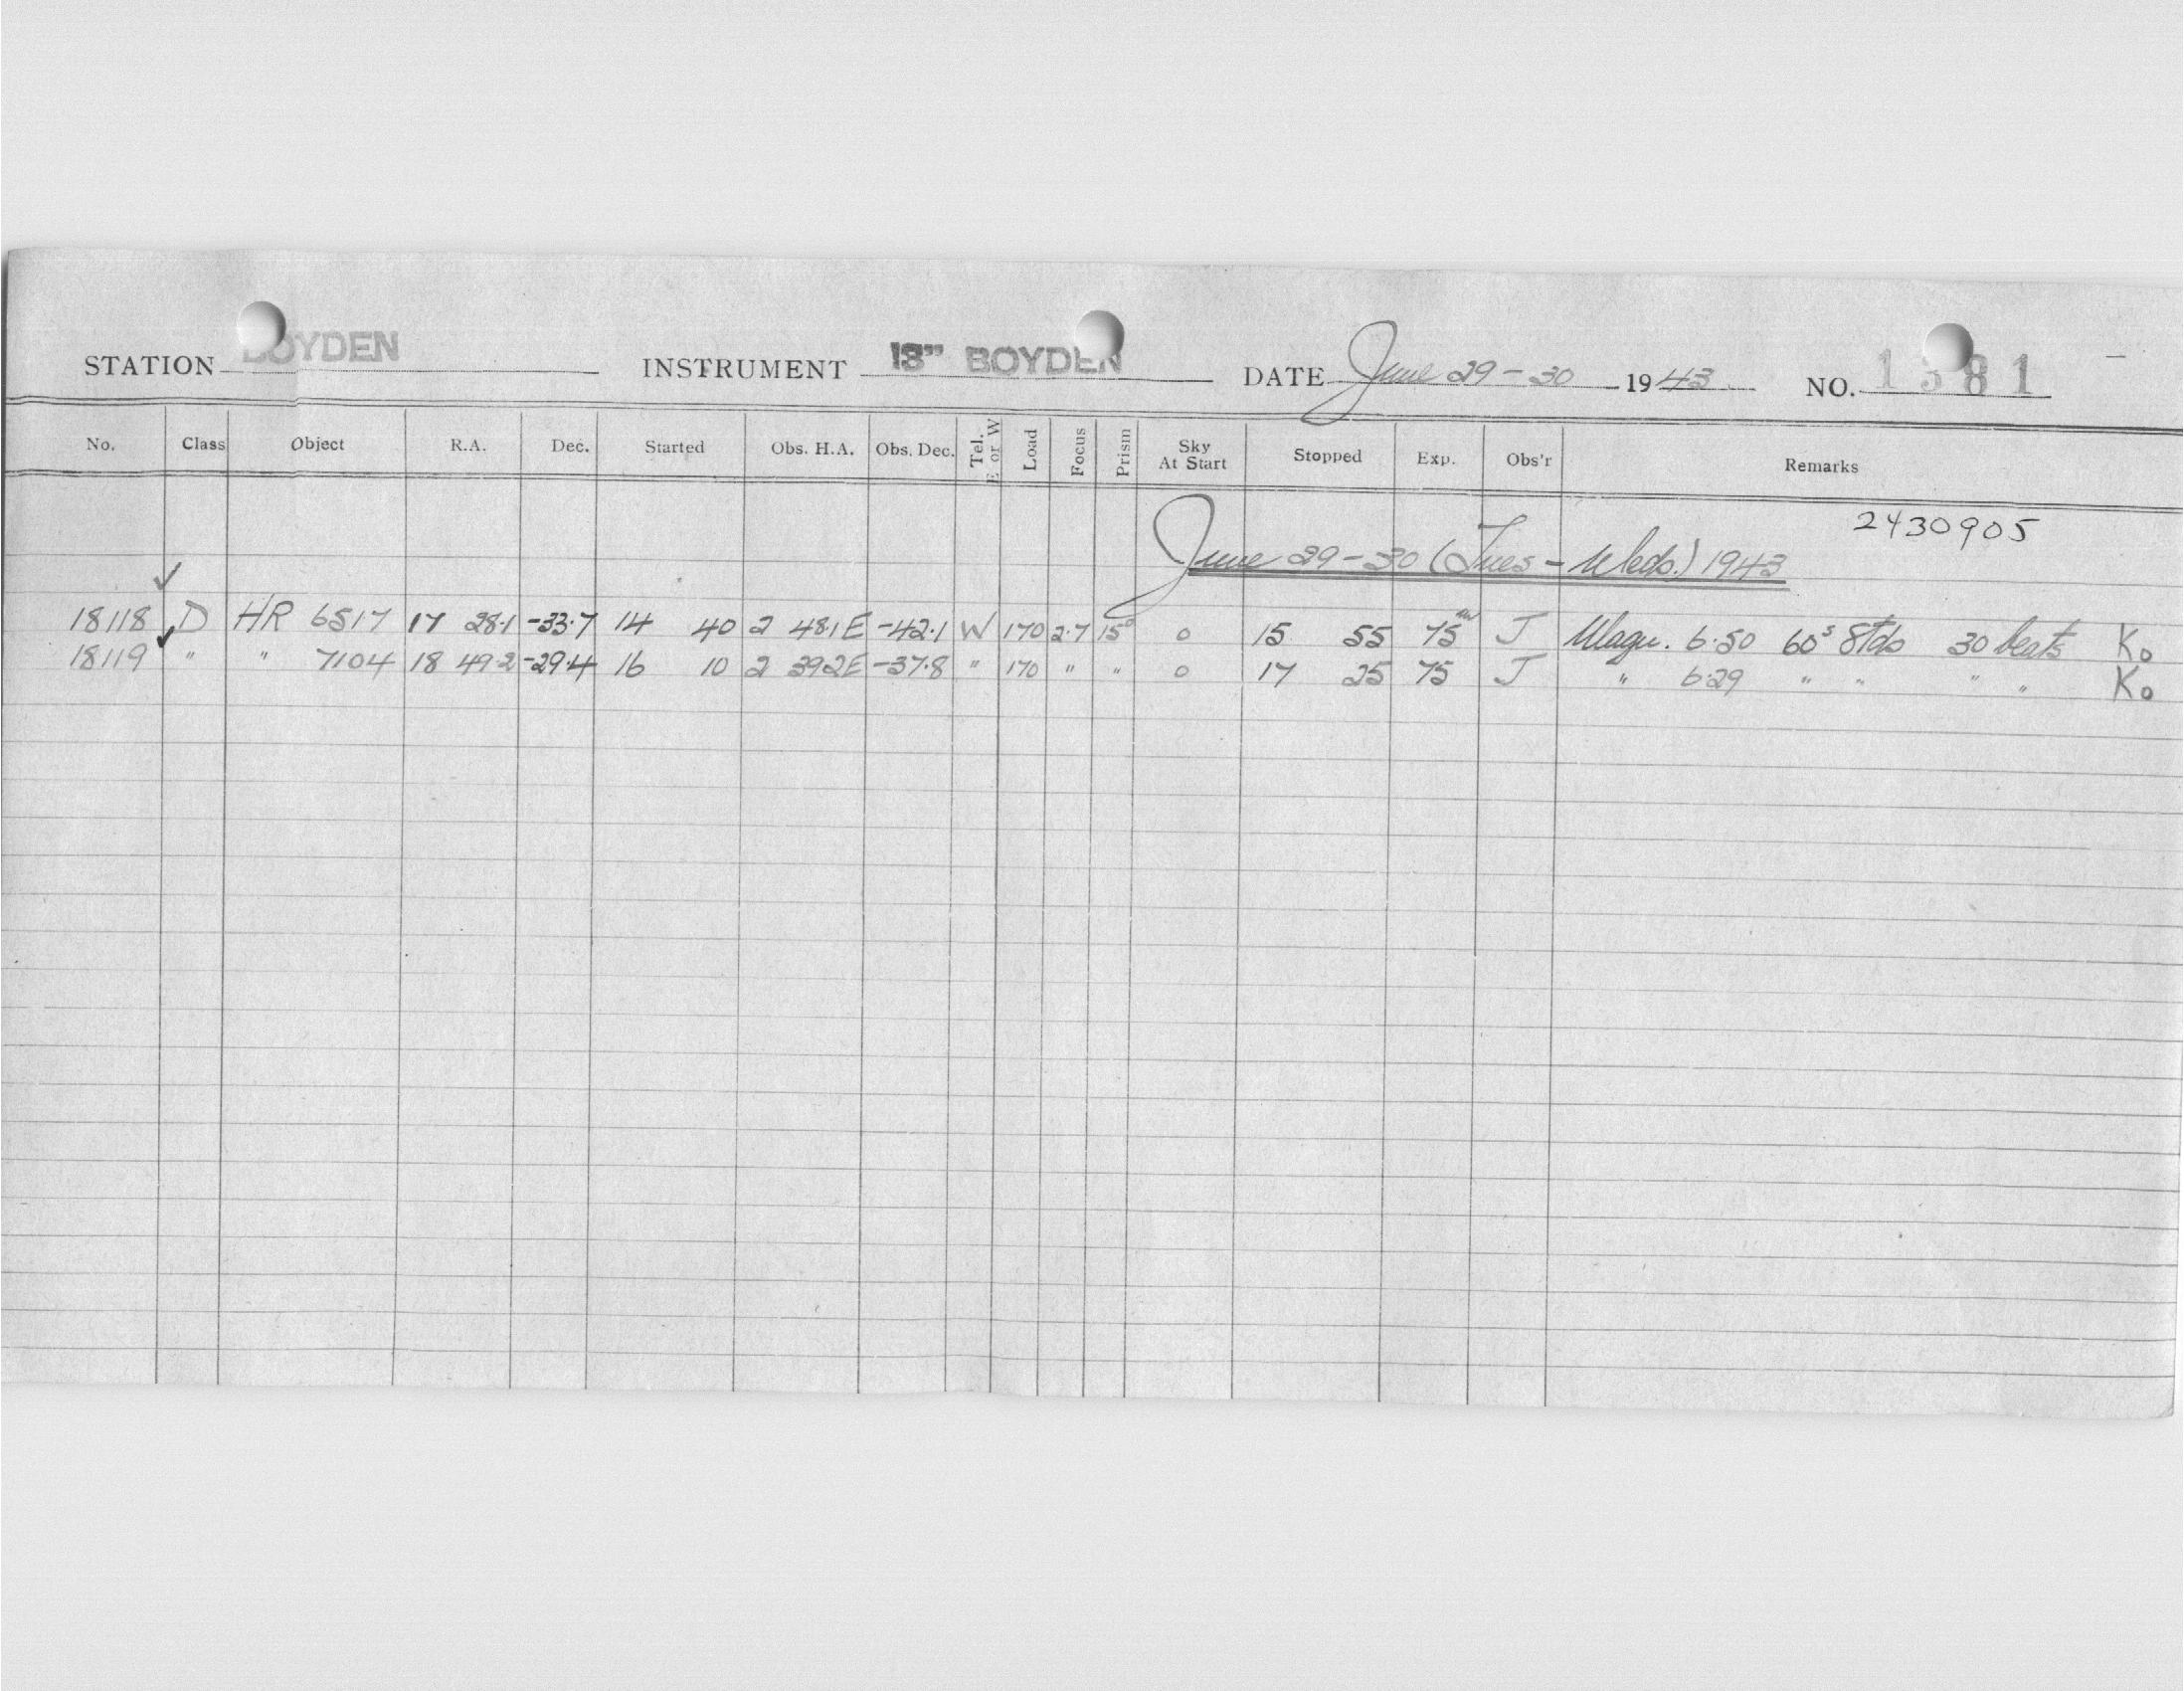 STATION BOYDEN INSTRUMENT 13" BOYDEN DATE June 29-30 1943 NO. 1381
No. Class Object R.A. Dec. Started Obs. H.A. Obs. Dec. Tel. E or W Load Focus Prism Sky At Start Stopped Exp. Obs'r Remarks
2430905
June 29-30 (Tues - Weds.) 1943
18118 D HR 6517 17 28.1 -33.7 14 40 2 48.1E -42.1 W 170 2.7 15° 0 15 55 75m J Magn. 6.50 60s Stds 30 beats K0
18119 " " 7104 18 49.2 -29.4 16 10 2 39.2E -37.8 " 170 " " 0 17 25 75 J " 6.29 " " " " K0